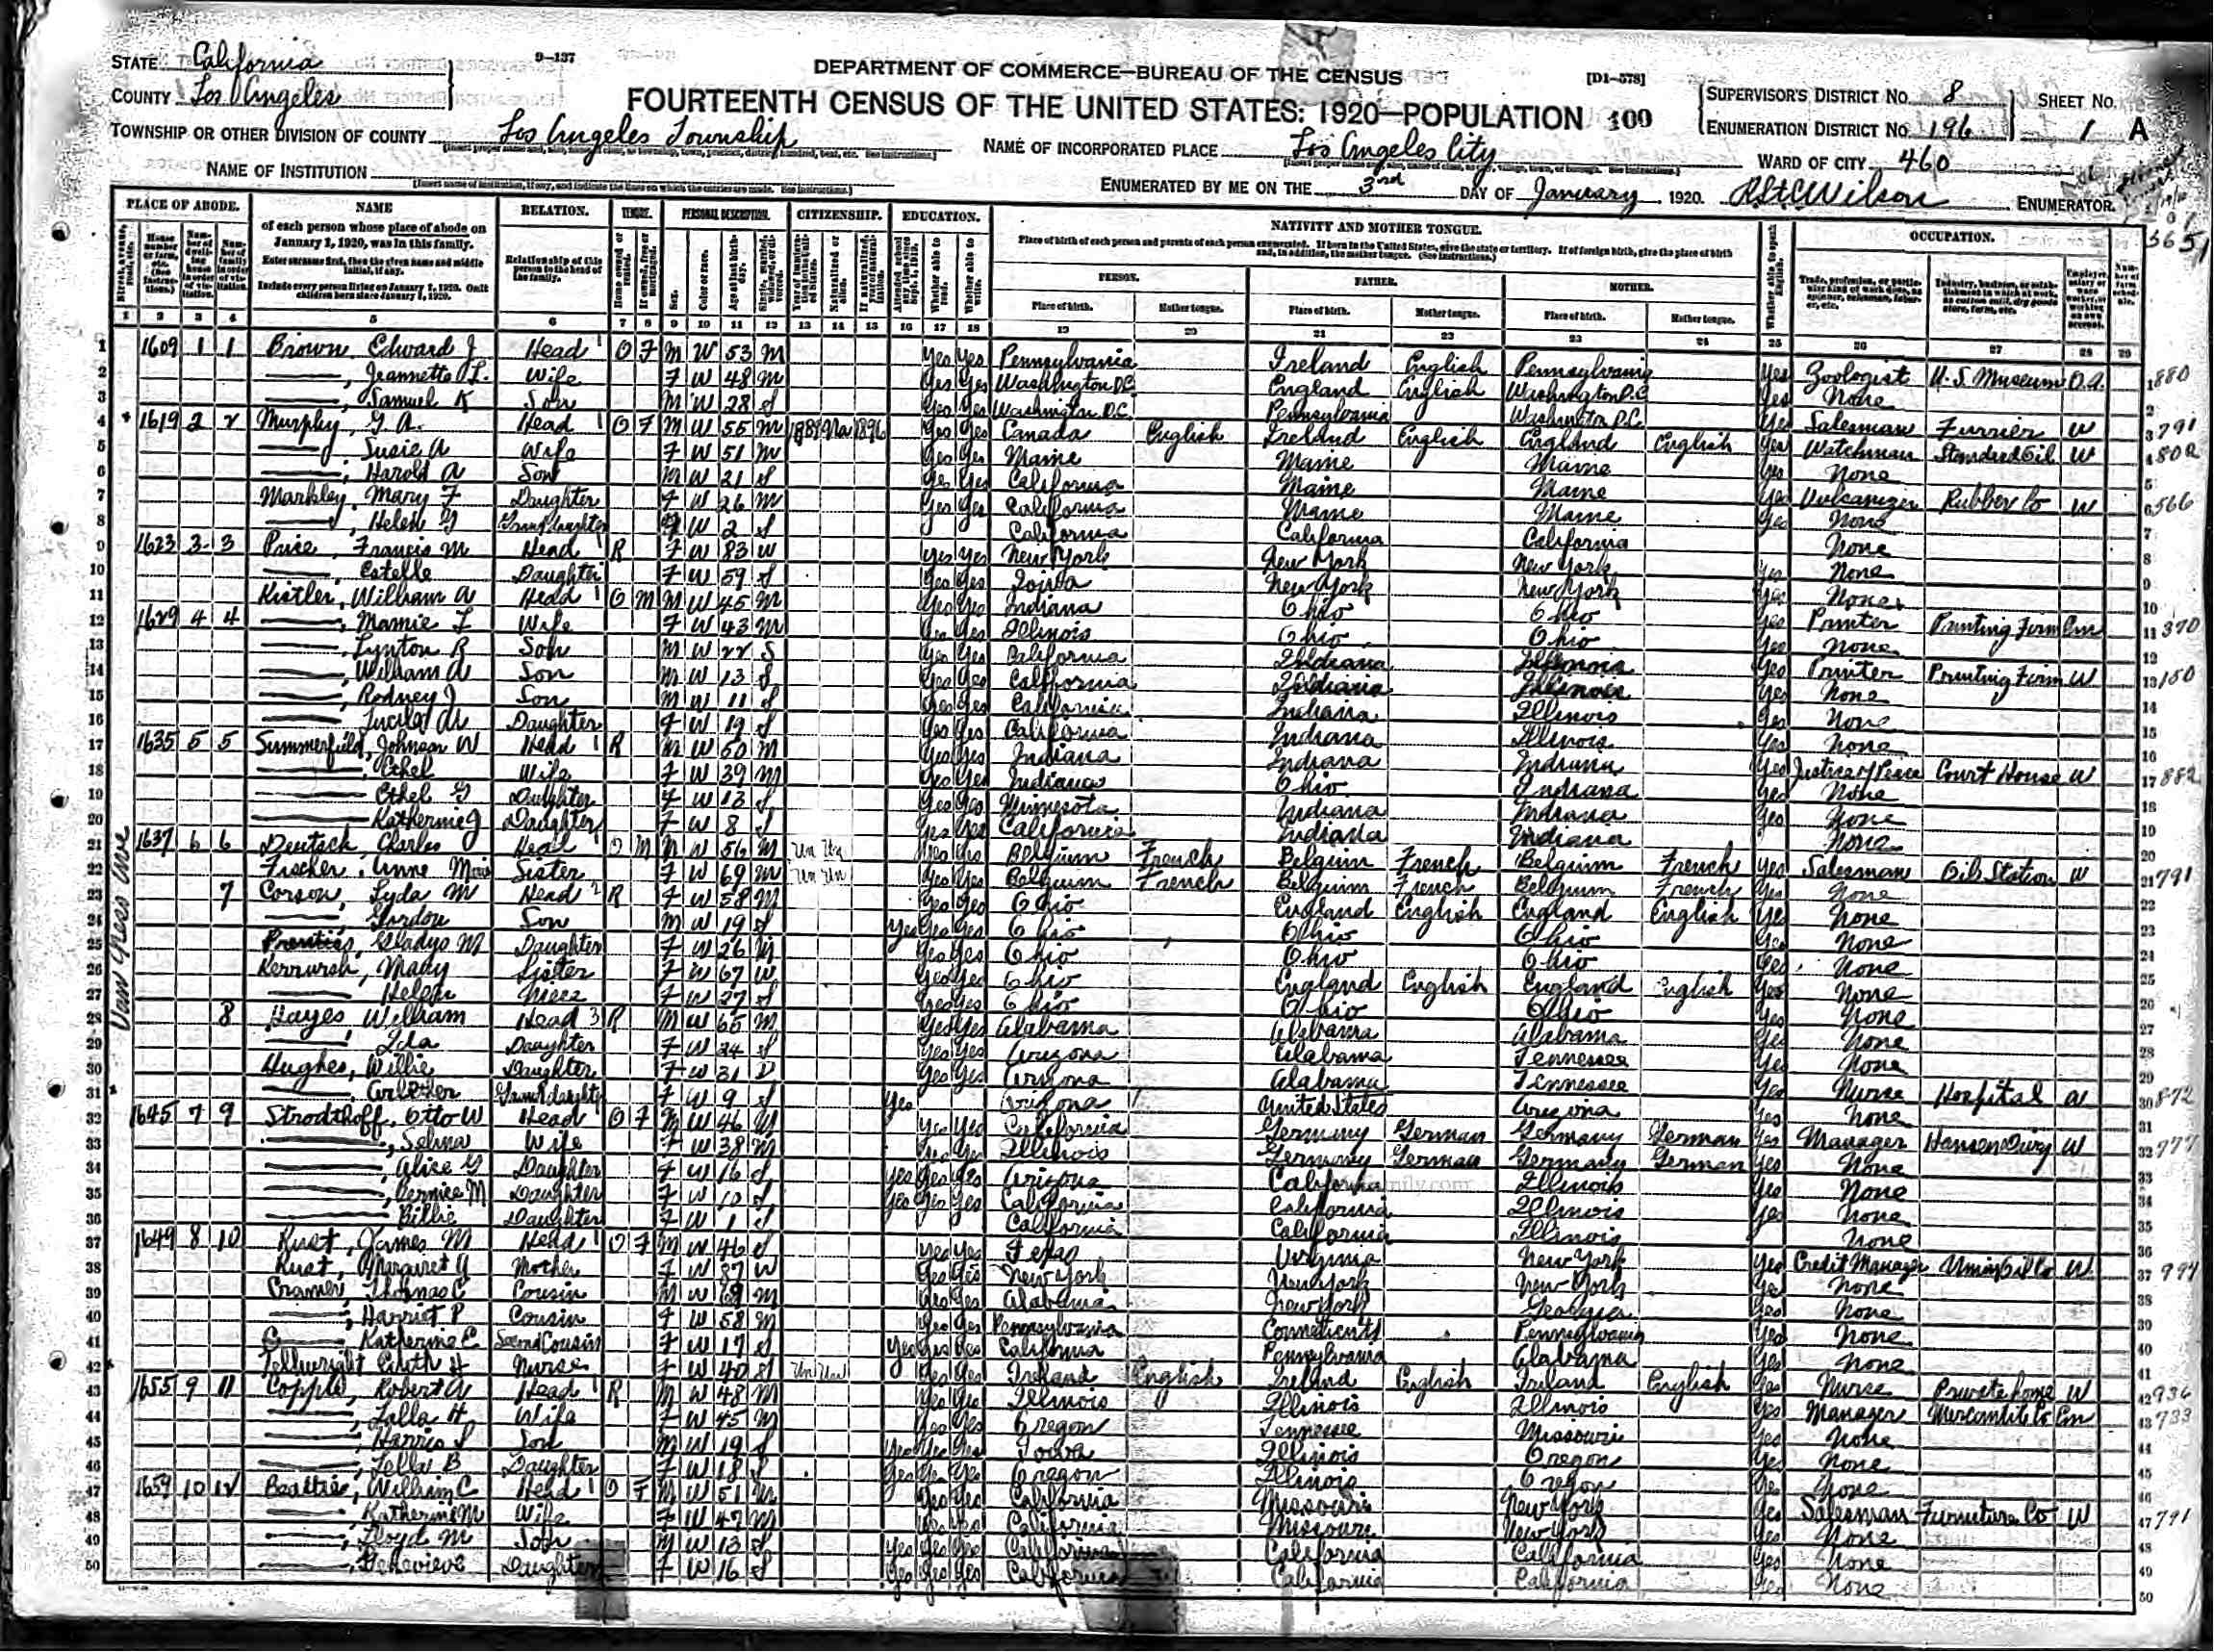 STATE California
9-137
DEPARTMENT OF COMMERCE—BUREAU OF THE CENSUS
[D1-578]
COUNTY Los Angeles
FOURTEENTH CENSUS OF THE UNITED STATES: 1920—POPULATION 400
SUPERVISOR'S DISTRICT No. 8 SHEET No.
ENUMERATION DISTRICT No. 196 1 A
TOWNSHIP OR OTHER DIVISION OF COUNTY Los Angeles Township NAME OF INCORPORATED PLACE Los Angeles City WARD OF CITY 460
NAME OF INSTITUTION ENUMERATED BY ME ON THE 3rd DAY OF January, 1920. Wilson ENUMERATOR.
PLACE OF ABODE. NAME RELATION. TENURE. PERSONAL DESCRIPTION. CITIZENSHIP. EDUCATION. NATIVITY AND MOTHER TONGUE. OCCUPATION.
of each person whose place of abode on January 1, 1920, was in this family.
Enter surname first, then the given name and middle initial, if any.
Include every person living on January 1, 1920. Omit children born since January 1, 1920.
Relationship of this person to the head of the family.
PERSON. FATHER. MOTHER.
Place of birth. Mother tongue. Place of birth. Mother tongue. Place of birth. Mother tongue.
1 2 3 4 5 6 7 8 9 10 11 12 13 14 15 16 17 18 19 20 21 22 23 24 25 26 27 28 29
Van Ness Ave
1 1609 1 1 Brown, Edward J Head 1 O F M W 53 M Yes Yes Pennsylvania Ireland English Pennsylvania Yes Zoologist U.S. Museum O.A. 880
2 Jeannette L. Wife F W 48 M Yes Yes Washington D.C. England English Washington D.C. Yes None
3 Samuel K Son M W 28 S Yes Yes Washington D.C. Pennsylvania Washington D.C. Yes Salesman Furrier W 791
4 1619 2 2 Murphy, G. A. Head 1 O F M W 55 M Na 1896 Yes Yes Canada English Ireland English England English Yes Watchman Standard Oil W 802
5 Susie A Wife F W 51 M Yes Yes Maine Maine Maine Yes None
6 Harold A Son M W 21 S Yes Yes California Maine Maine Yes Vulcanizer Rubber Co W 566
7 Markley, Mary F Daughter F W 26 M Yes Yes California Maine Maine Yes None
8 Helen G Granddaughter F W 2 S California California California None
9 1623 3 3 Price, Francis M Head 1 R F W 83 W Yes Yes New York New York New York Yes None
10 Estelle Daughter F W 59 S Yes Yes Iowa New York New York Yes None
11 Kistler, William A Head 1 O M M W 45 M Yes Yes Indiana Ohio Ohio Yes Printer Printing Firm Em 370
12 1629 4 4 Mamie F Wife F W 43 M Yes Yes Illinois Ohio Ohio Yes None
13 Lynton R Son M W 22 S Yes Yes California Indiana Illinois Yes Printer Printing Firm W 150
14 William A Son M W 13 S Yes Yes California Indiana Illinois Yes None
15 Rodney J Son M W 11 S Yes Yes California Indiana Illinois Yes None
16 Lucile M Daughter F W 19 S Yes Yes California Indiana Illinois Yes None
17 1635 5 5 Summerfield, Johnson W Head 1 R M W 50 M Yes Yes Indiana Indiana Indiana Yes Justice of Peace Court House W 882
18 Ethel Wife F W 39 M Yes Yes Indiana Ohio Indiana Yes None
19 Ethel G Daughter F W 13 S Yes Yes Minnesota Indiana Indiana Yes None
20 Katherine J Daughter F W 8 S Yes Yes California Indiana Indiana None
21 1637 6 6 Deutsch, Charles Head O M M W 56 M Un Un Yes Yes Belgium French Belgium French Belgium French Yes Salesman Oil Station W 791
22 Fischer, Anne Marie Sister F W 69 W Un Un Yes Yes Belguim French Belguim French Belgium French Yes None
23 7 Corson, Lyda M Head 2 R F W 58 M Yes Yes Ohio England English England English Yes None
24 Gordon Son M W 19 S Yes Yes Yes Ohio Ohio Ohio Yes None
25 Prentiss, Gladys M Daughter F W 26 M Yes Yes Ohio Ohio Ohio Yes None
26 Kerruish, Mary Sister F W 67 W Yes Yes Ohio England English England English Yes None
27 Helen Niece F W 27 S Yes Yes Ohio Ohio Ohio Yes None
28 8 Hayes, William Head 3 R M W 65 M Yes Yes Alabama Alabama Alabama Yes None
29 Ida Daughter F W 24 S Yes Yes Arizona Alabama Tennessee Yes None
30 Hughes, Willie Daughter F W 31 D Yes Yes Arizona Alabama Tennessee Yes Nurse Hospital W 872
31 Granddaughter F W 9 S Yes Arizona United States Arizona Yes None
32 1645 7 9 Strodthoff, Otto W Head O F M W 46 M Yes Yes California Germany German Germany German Yes Manager W 777
33 Selma Wife F W 38 M Yes Yes Illinois Germany German Germany German Yes None
34 Alice G Daughter F W 16 S Yes Yes Yes Arizona California Illinois Yes None
35 Bernice M Daughter F W 10 S Yes Yes Yes California California Illinois Yes None
36 Billie Daughter F W 1 S California California Illinois None
37 1649 8 10 Rust, James M Head 1 O F M W 46 S Yes Yes Texas Virginia New York Yes Credit Manager Union Oil Co W
38 Rust, Margaret Y Mother F W 87 W Yes Yes New York New York New York Yes None
39 Cramer, Thomas C Cousin M W 69 M Yes Yes Alabama New York Georgia Yes None
40 Harriet P Cousin F W 58 M Yes Yes Pennsylvania Connecticut Pennsylvania Yes None
41 Katherine C Second Cousin F W 17 S Yes Yes Yes California Pennsylvania Alabama Yes None
42 Tellwright Edith H Nurse F W 40 S Un Un Yes Yes Ireland English Ireland English Ireland English Yes Nurse Private home W 936
43 1655 9 11 Copple, Robert A Head 1 R M W 48 M Yes Yes Illinois Illinois Illinois Yes Manager Mercantile Co Em 733
44 Lalla H Wife F W 45 M Yes Yes Oregon Tennessee Missouri Yes None
45 Harris S Son M W 19 S Yes Yes Yes Iowa Illinois Oregon Yes None
46 Lella B Daughter F W 18 S Yes Yes Yes Oregon Illinois Oregon Yes None
47 1659 10 12 Beattie, William C Head 1 O F M W 51 M Yes Yes California Missouri New York Yes Salesman Furniture Co W 791
48 Katherine M Wife F W 47 M Yes Yes California Missouri New York Yes None
49 Lloyd M Son M W 13 S Yes Yes Yes California California California Yes None
50 Genevieve Daughter F W 16 S Yes Yes Yes California California California Yes None